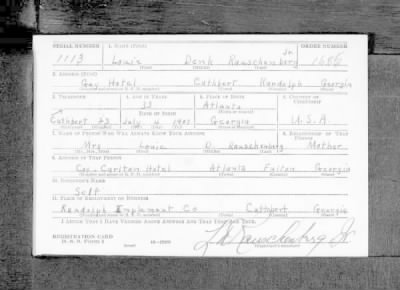 SERIAL NUMBER 1. NAME (Print) ORDER NUMBER
1113 Louis Denk Rauschenberg Jr 1686
(First) (Middle) (Last)
2. ADDRESS (Print)
Gay Hotel Cuthbert Randolph Georgia
(Town) (County) (State)
3. TELEPHONE 4. AGE IN YEARS 5. PLACE OF BIRTH 6. COUNTRY OF CITIZENSHIP
33 Atlanta
DATE OF BIRTH (Town or county)
Cuthbert 23 July 4 1907 Georgia U.S.A
7. NAME OF PERSON WHO WILL ALWAYS KNOW YOUR ADDRESS 8. RELATIONSHIP OF THAT PERSON
Mrs Louis D Rauschenberg Mother
9. ADDRESS OF THAT PERSON
Cox-Carlton Hotel Atlanta Fulton Georgia
10. EMPLOYER'S NAME
Self
11. PLACE OF EMPLOYMENT OR BUSINESS
Randolph Implement Co Cuthbert Georgia
I AFFIRM THAT I HAVE VERIFIED ABOVE ANSWERS AND THAT THEY ARE TRUE.
REGISTRATION CARD
D. S. S. FORM 1 16-17105 L D Rauschenberg Jr.